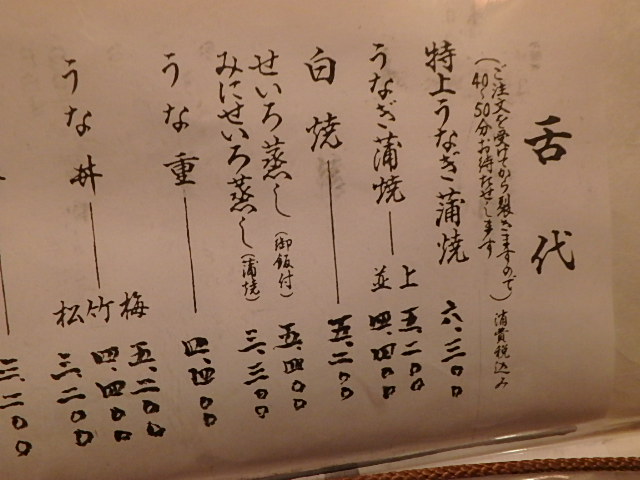 舌代
(ご注文を受けてから裂きますので)
40〜50分お待たせします
消費税込み
特上うなぎ蒲焼 六、三〇〇
うなぎ蒲焼 上 五、二〇〇
並 四、四〇〇
白焼 五、二〇〇
せいろ蒸し(御飯付) 五、四〇〇
みにせいろ蒸し(蒲焼) 三、三〇〇
うな重 四、四〇〇
うな丼 梅 五、二〇〇
竹 四、四〇〇
松 三、二〇〇
三、二〇〇